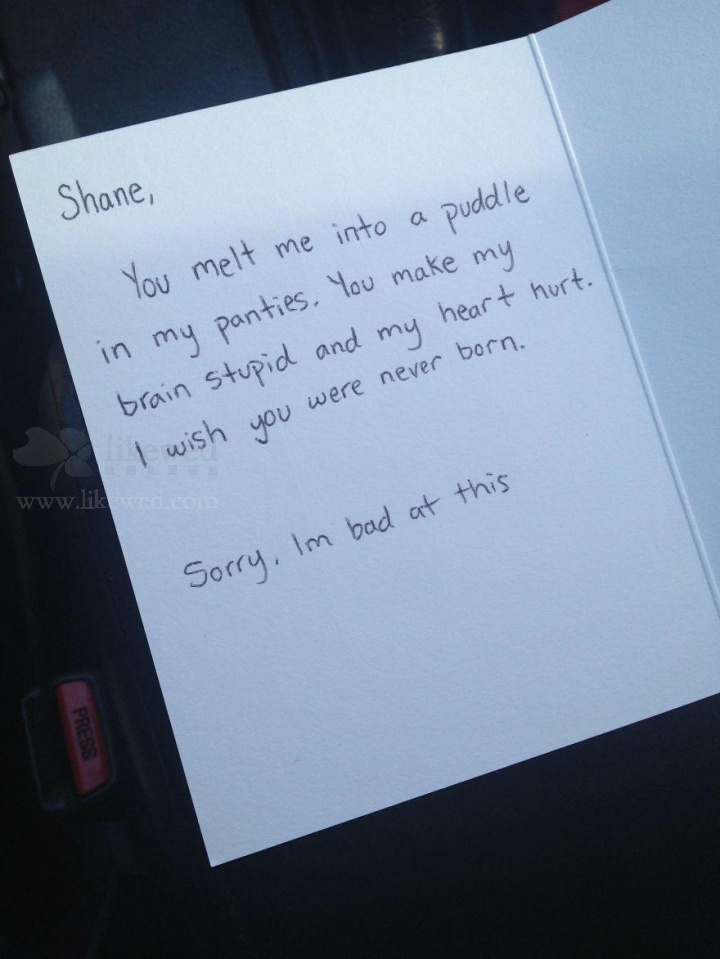 Shane,
You melt me into a puddle
in my panties. You make my
brain stupid and my heart hurt.
I wish you were never born.
Sorry. Im bad at this
likewed
www.likewed.com
PRESS